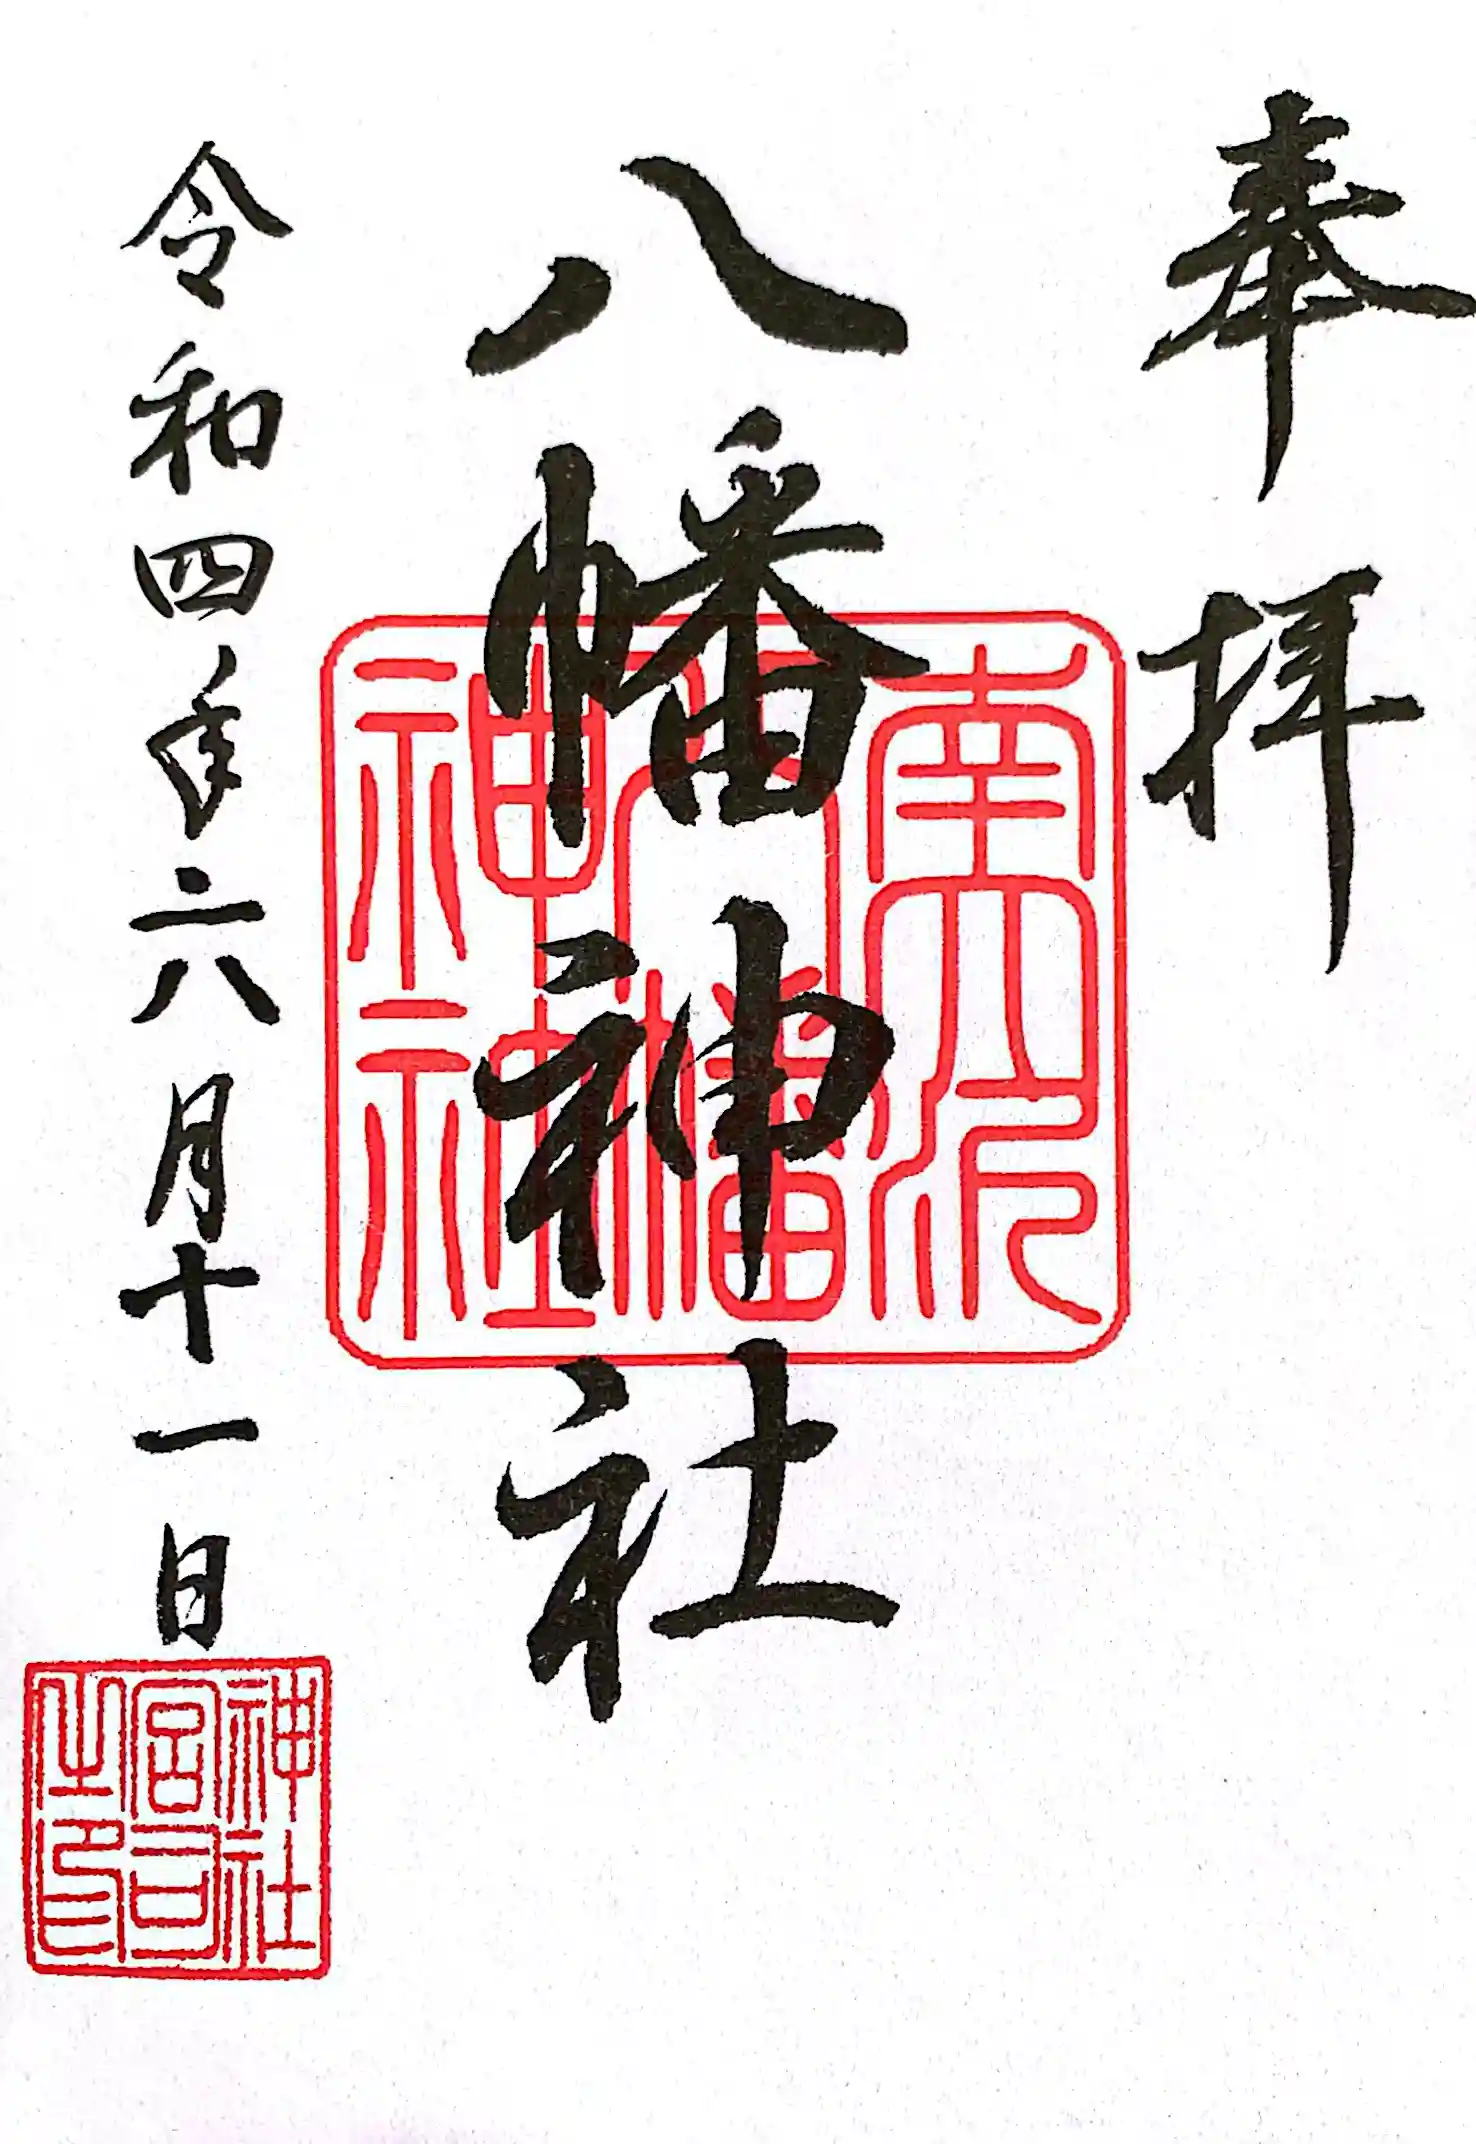 奉拝
八幡神社
令和四年六月十一日
八幡
神社
神社
宮司
之印